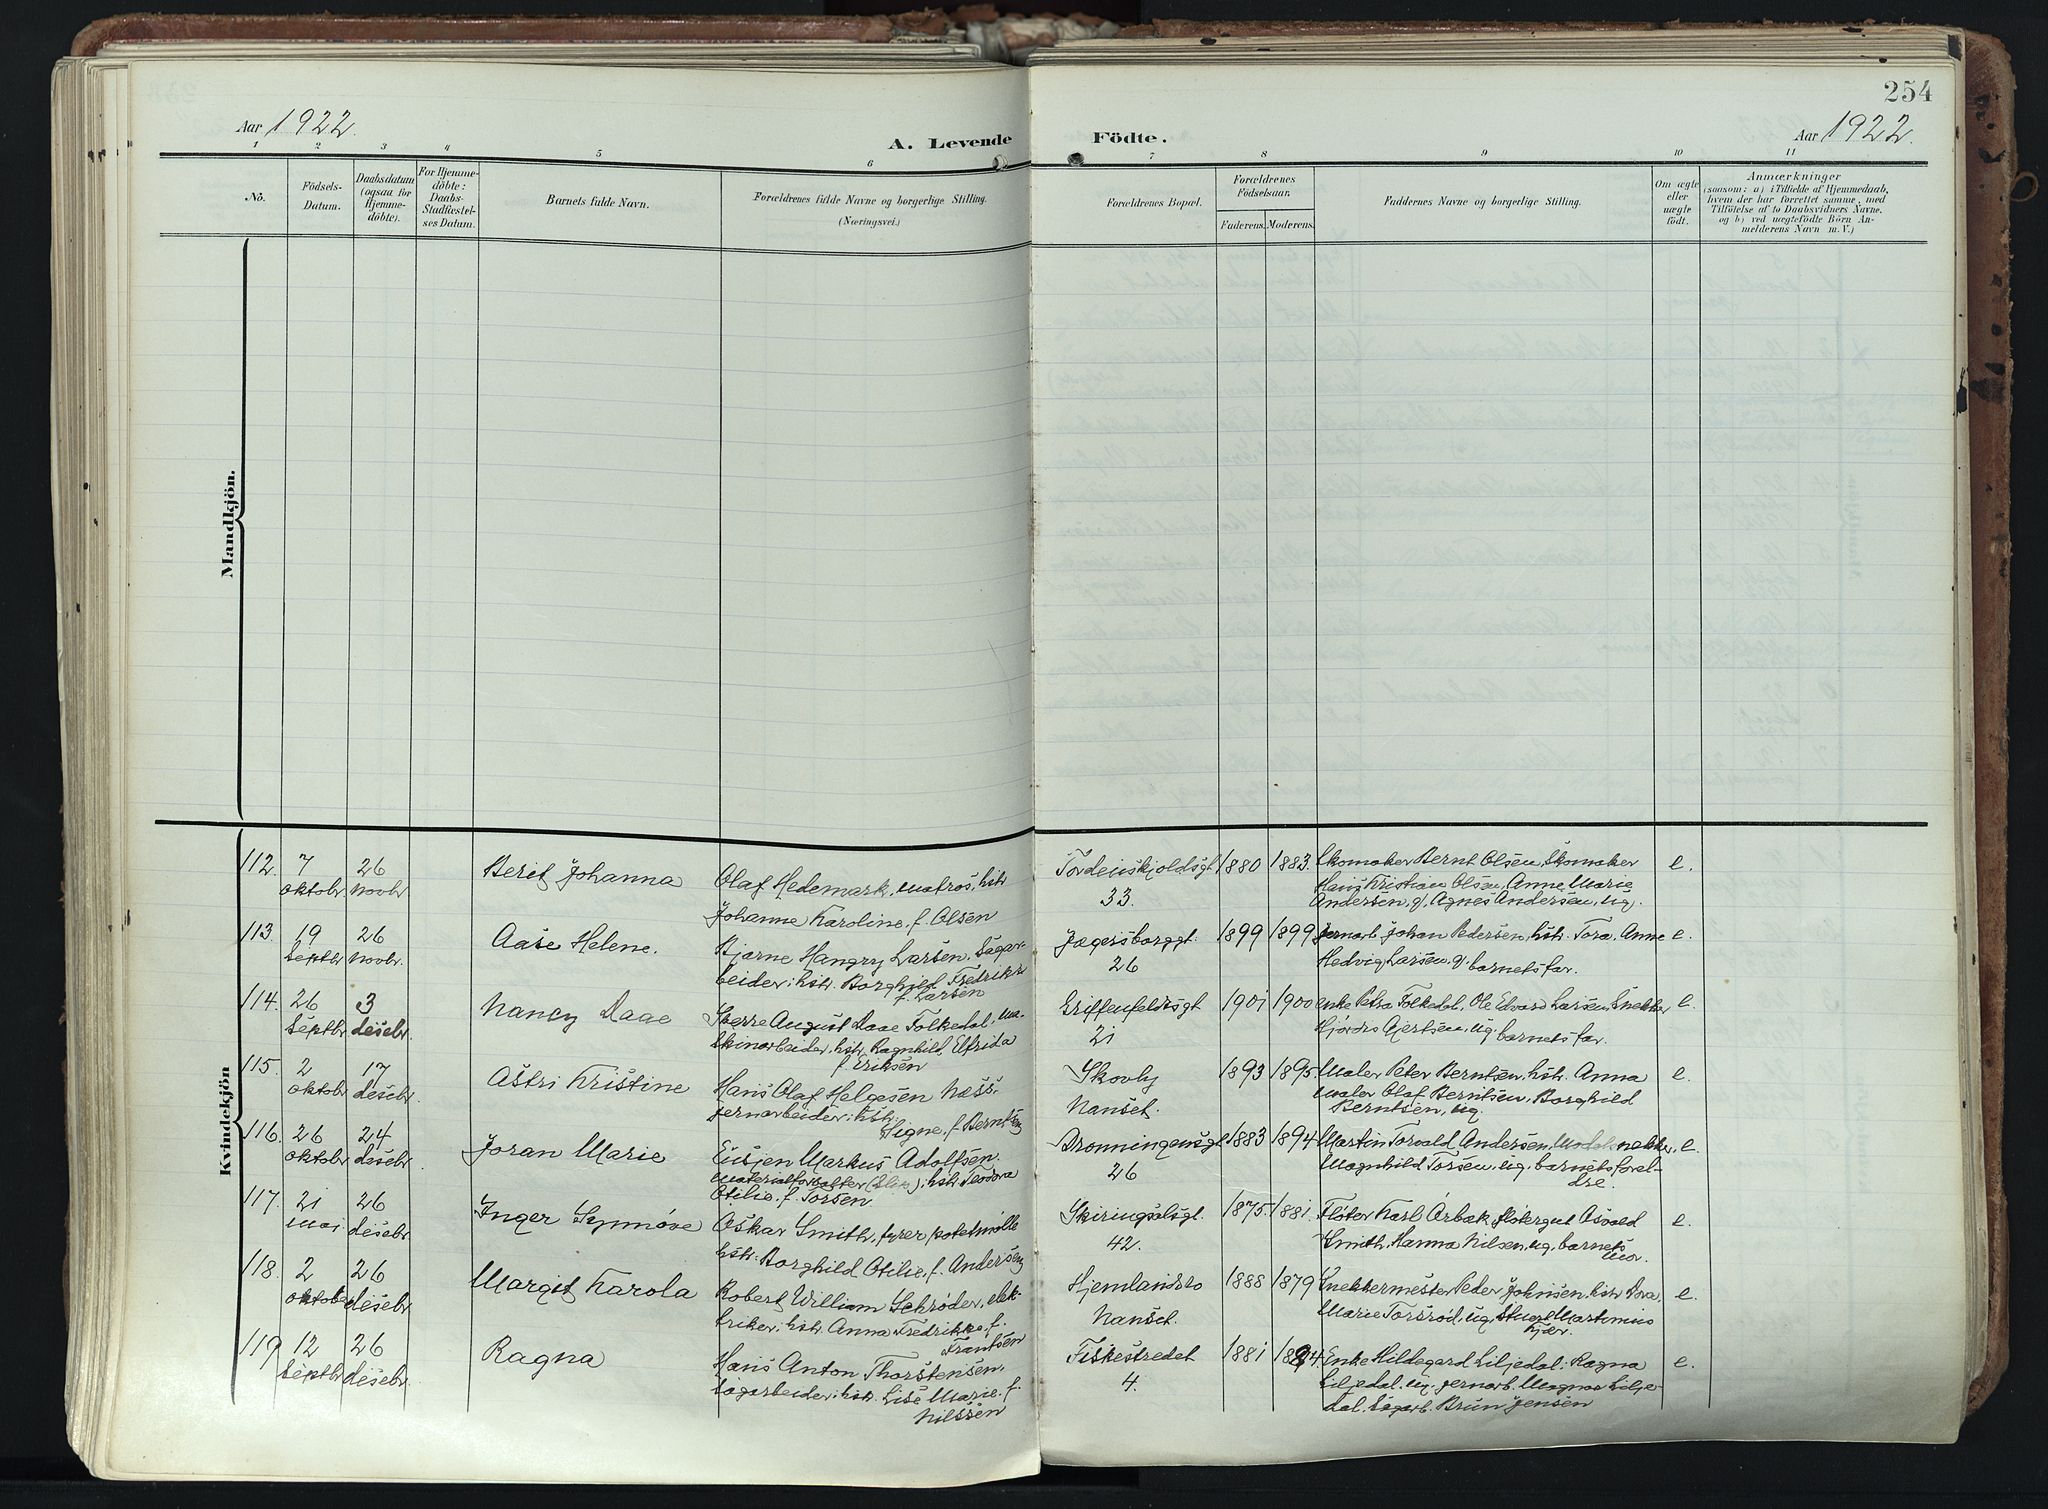 254
Aar 1922.
A. Levende Födte.
Aar 1922.
1 2 3 4 5 6 7 8 9 10 11
No.
Födsels-
Datum.
Daabsdatum
(ogsaa for
Hjemme-
döbte).
For Hjemme-
döbte:
Daabs-
Stadfæstel-
ses Datum.
Barnets fulde Navn.
Forældrenes fulde Navne og borgerlige Stilling.
(Næringsvei.)
Forældrenes Bopæl.
Forældrenes
Födselsaar.
Faderens. Moderens.
Faddernes Navne og borgerlige Stilling.
Om ægte
eller
uægte
födt.
Anmærkninger
(saasom: a) i Tilfælde af Hjemmedaab,
hvem der har forrettet samme, med
Tilföielse af to Daabsvidners Navne.
og b) ved uægtefödte Börn An-
melderens Navn m. V.)
Mandkjön.
Kvindekjön
112. 7 oktobr. 26 novbr
Berit Johanna
Olaf Hedemark, matros, hstr
Johanne Karoline f. Olsen
Tordenskjoldsgt
33.
1880 1883.
Skomaker Bernt Olsen, Skomaker
Hans Kristian Olsen, Anne Marie
Andersen, g, Agnes Andersen, ug.
e.
113. 19 Septbr 26 novbr.
Aase Helene.
Bjarne Hangry Larsen, Sagar-
beider; hstr. Borghild Fredrikke
f. Larsen
Jegersborggt.
26
1899 1899
Jernarb. Johan Pedersen, hstr. Tora, Anne
Hedvig Larsen, g. barnets far.
e.
114. 26 Septbr 3 desebr.
Nancy Daae
Sverre August Daae Folkedal, ma-
skinarbeider, hstr. Ragnhild Elfrida
f. Eriksen
Griffenfeldtsgt
21
1901 1900
enke Petra Folkedal, Ole Edvard Larsen, Snekker
Hjørdis Gjertsen, ug. barnets far.
e.
115. 2 oktobr 17 desebr.
Astri Kristine
Hans Olaf Helgesen Næss.
jernarbeider; hstr.
Signe, f. Berntsen
Skovly
Nanset.
1893 1895.
Maler Peter Berntsen, hstr. Anna
maler Olaf Berntsen, Borghild
Berntsen, ug.
e.
116. 26 oktobr 24 desebr
Joran Marie
Eugen Markus Adolfsen.
materialforvalter; hstr Teodora
Otilie. f. Torsen
Dronningensgt
26
1883 1894
Martin Torvald Andersen, Modelsnekker,
Magnhild Torsen, ug, barnets forel-
dre.
e.
117. 21 mai 26 desebr
Inger Synnøve
Oskar Smith, fyrer potetmølle
hstr. Borghild Otilie, f. Andersen
Skiringsalsgt.
42.
1875. 1881.
Fløter Karl Arbak, fløtergut Asvald
Smith, Hanna Nilsen, ug, barnets
mor.
e.
118. 2 oktobr 26 desebr
Margit Karola
Robert William Schrøder, elek-
triker; hstr. Anna Fredrikke, f.
Frantsen
Hjemlandsro
Nanset.
1888 1879
Snekkermester Peder Johnsen, hstr Dora,
Marie Torsrød, ug,
e.
119 12 Septbr 26 desebr.
Ragna
Hans Anton Thorstensen.
Sagarbeider; hstr. Lise Marie, f.
Nilssen
Fiskestredet
4.
1881 1884.
Enke Hildegard Liljedal, Ragna
Liljedal, ug. jernarb. Magnor Lilje-
dal, Sagarb. Brun Jensen
e.